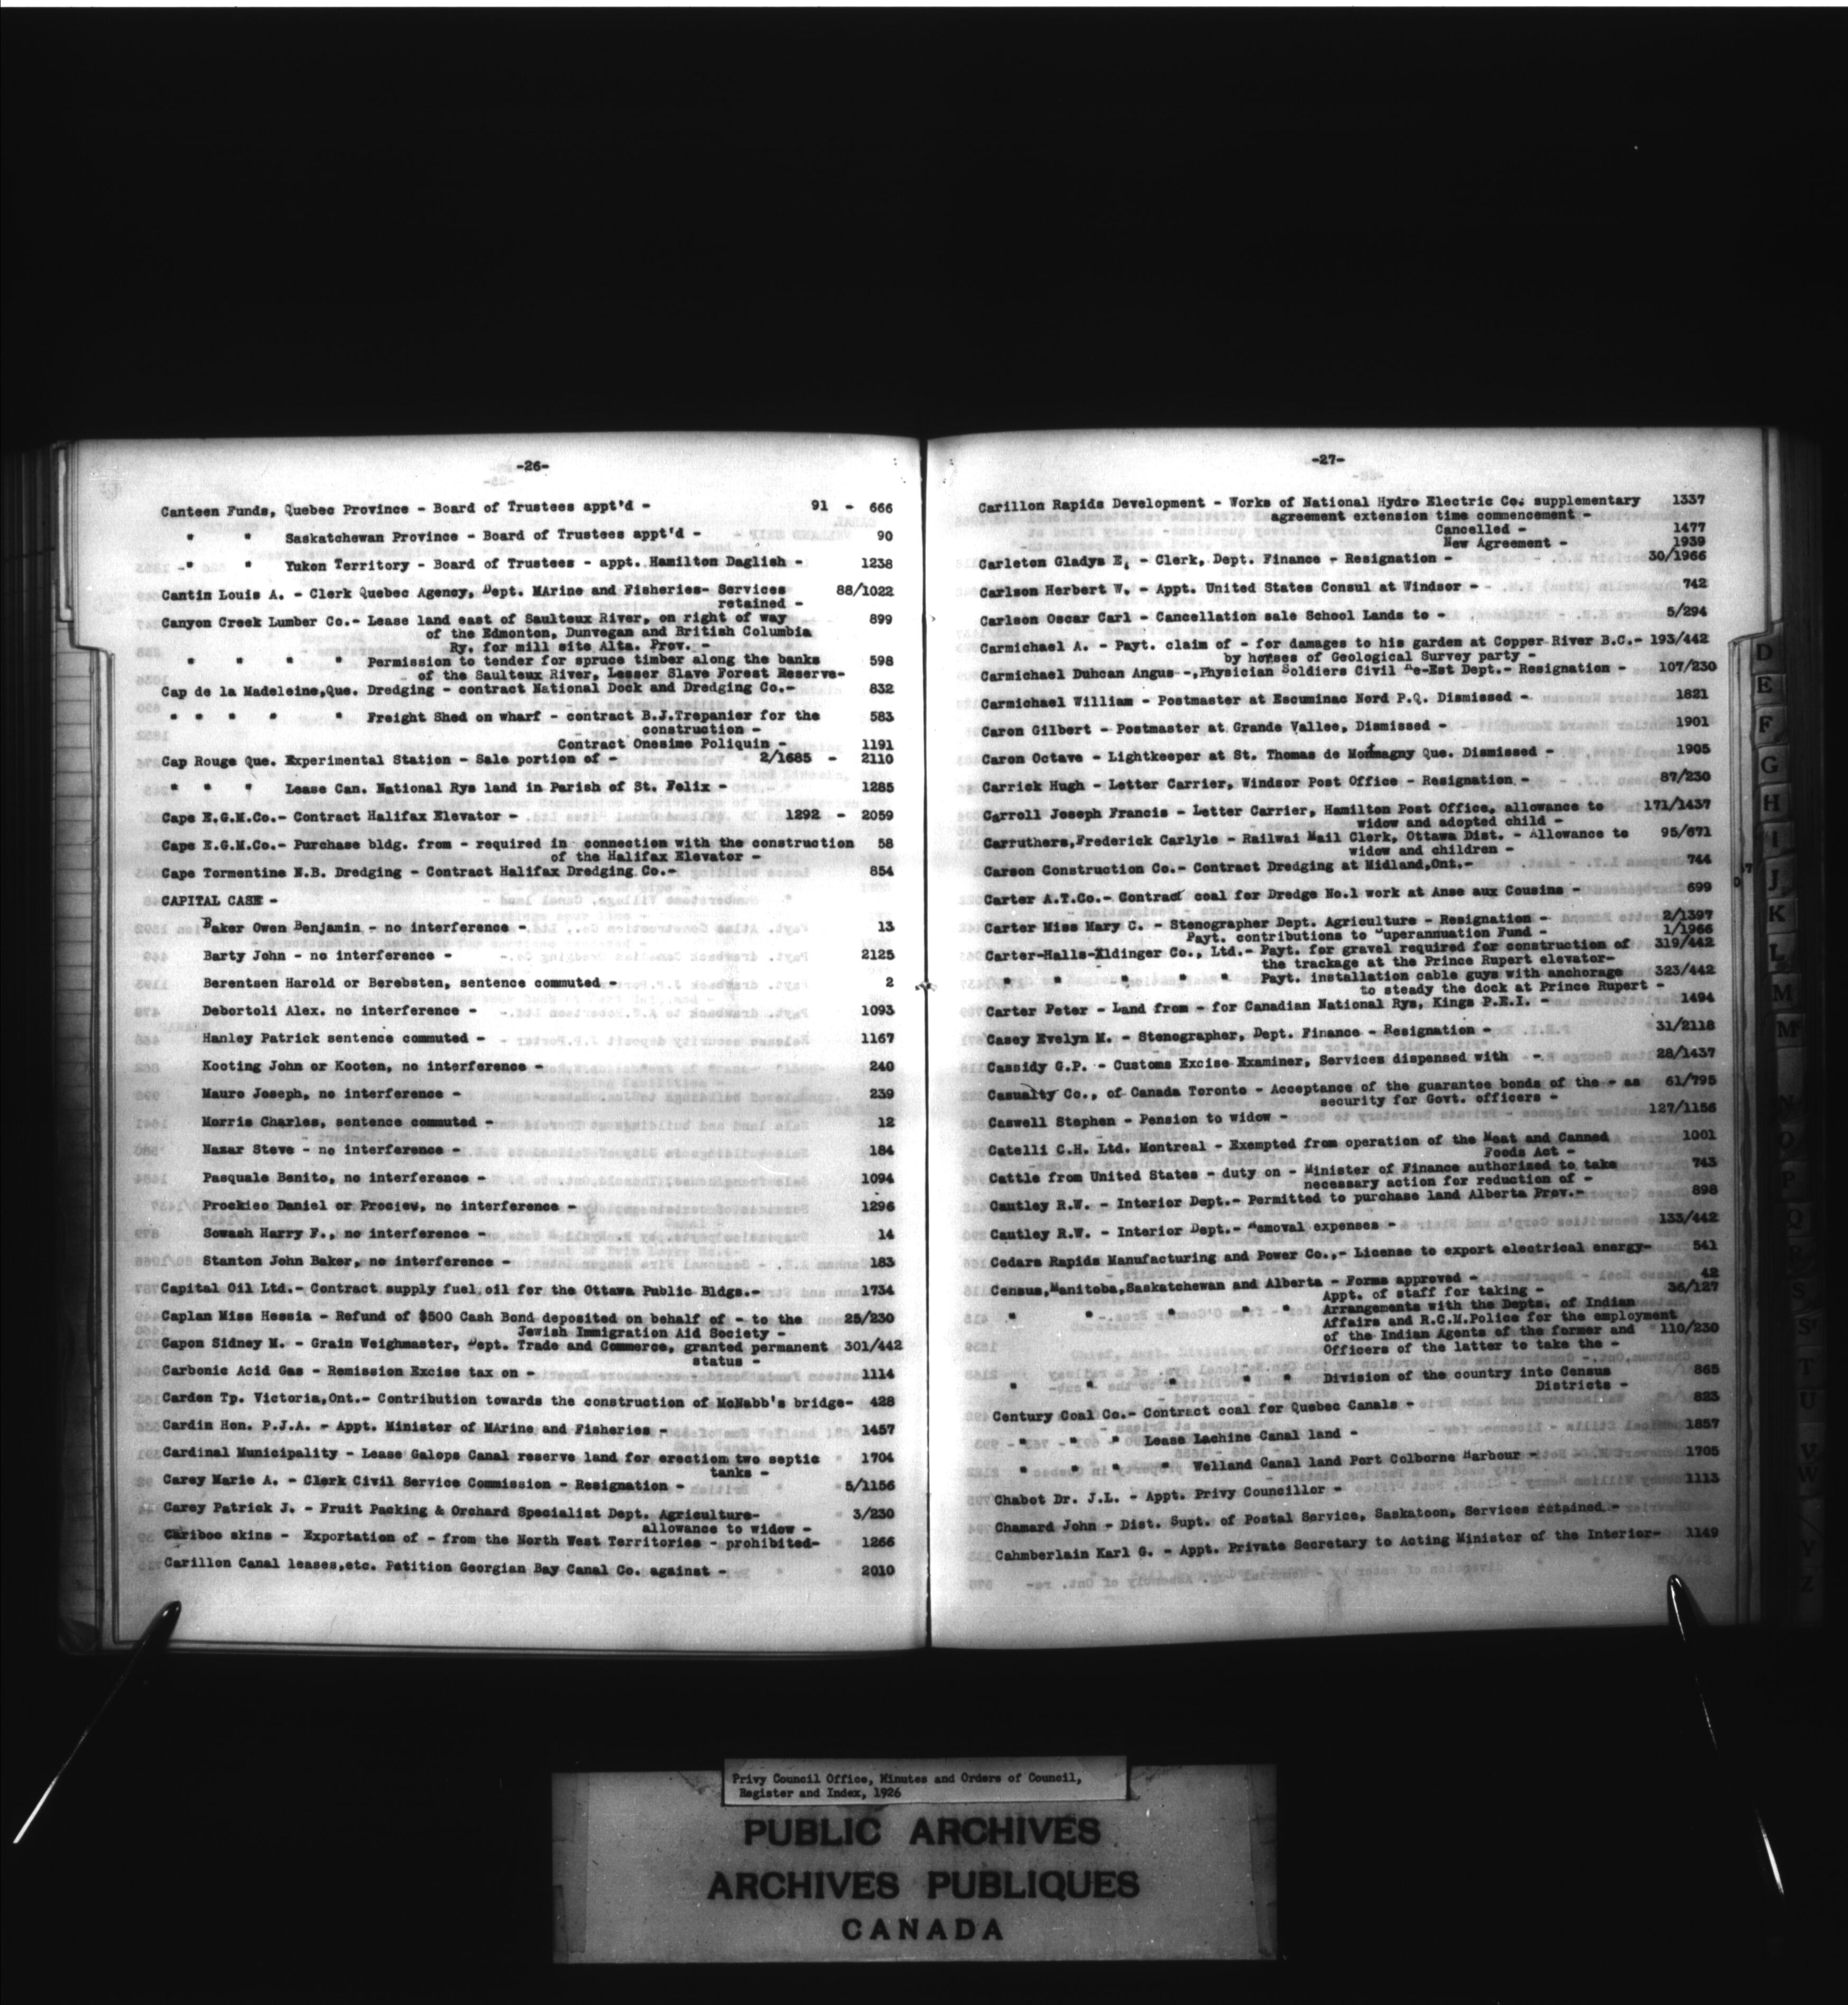 -26-
Canteen Funds, Quebec Province - Board of Trustees appt'd - 91 - 666
" " Saskatchewan Province - Board of Trustees appt'd - 90
" " Yukon Territory - Board of Trustees - appt. Hamilton Daglish - 1238
Cantin Louis A. - Clerk Quebec Agency, Dept. MArine and Fisheries- Services 88/1022
retained -
Canyon Creek Lumber Co.- Lease land east of Saulteux River, on right of way 899
of the Edmonton, Dunvegan and British Columbia
Ry. for mill site Alta. Prov. -
" " " " Permission to tender for spruce timber along the banks 598
of the Saulteux River, Lesser Slave Forest Reserve-
Cap de la Madeleine,Que. Dredging - contract National Dock and Dredging Co.- 832
" " " " " Freight Shed on wharf - contract B.J.Trepanier for the 583
construction -
Contract Onesime Poliquin - 1191
Cap Rouge Que. Experimental Station - Sale portion of - 2/1685 - 2110
" " " Lease Can. National Rys land in Parish of St. Felix - 1285
Cape E.G.M.Co.- Contract Halifax Elevator - 1292 - 2059
Cape E.G.M.Co.- Purchase bldg. from - required in connection with the construction 58
of the Halifax Elevator -
Cape Tormentine N.B. Dredging - Contract Halifax Dredging Co.- 854
CAPITAL CASE -
Baker Owen Benjamin - no interference - 13
Barty John - no interference - 2125
Berentsen Harold or Berebsten, sentence commuted - 2
Debortoli Alex. no interference - 1093
Hanley Patrick sentence commuted - 1167
Kooting John or Kooten, no interference - 240
Mauro Joseph, no interference - 239
Morris Charles, sentence commuted - 12
Nazar Steve - no interference - 184
Pasquale Benito, no interference - 1094
Prockiec Daniel or Prociew, no interference - 1296
Sowash Harry F., no interference - 14
Stanton John Baker, no interference - 183
Capital Oil Ltd.- Contract supply fuel oil for the Ottawa Public Bldgs.- 1734
Caplan Miss Hessia - Refund of $500 Cash Bond deposited on behalf of - to the 25/230
Jewish Immigration Aid Society -
Capon Sidney M. - Grain Weighmaster, Dept. Trade and Commerce, granted permanent 301/442
status -
Carbonic Acid Gas - Remission Excise tax on - 1114
Carden Tp. Victoria,Ont.- Contribution towards the construction of McNabb's bridge- 428
Cardin Hon. P.J.A. - Appt. Minister of MArine and Fisheries - 1457
Cardinal Municipality - Lease Galops Canal reserve land for erection two septic 1704
tanks -
Carey Marie A. - Clerk Civil Service Commission - Resignation - 5/1156
Carey Patrick J. - Fruit Packing & Orchard Specialist Dept. Agriculture- 3/230
allowance to widow -
Cariboo skins - Exportation of - from the North West Territories - prohibited- 1266
Carillon Canal leases,etc. Petition Georgian Bay Canal Co. against - 2010
-27-
Carillon Rapids Development - Works of National Hydro Electric Co. supplementary 1337
agreement extension time commencement -
Cancelled - 1477
New Agreement - 1939
Carleton Gladys E. - Clerk, Dept. Finance - Resignation - 30/1966
Carlson Herbert W. - Appt. United States Consul at Windsor - 742
Carlson Oscar Carl - Cancellation sale School Lands to - 5/294
Carmichael A. - Payt. claim of - for damages to his garden at Copper River B.C.- 193/442
by horses of Geological Survey party -
Carmichael Duncan Angus -,Physician Soldiers Civil Re-Est Dept.- Resignation - 107/230
Carmichael William - Postmaster at Escuminac Nord P.Q. Dismissed - 1821
Caron Gilbert - Postmaster at Grande Vallee, Dismissed - 1901
Caron Octave - Lightkeeper at St. Thomas de Montmagny Que. Dismissed - 1905
Carrick Hugh - Letter Carrier, Windsor Post Office - Resignation - 87/230
Carroll Joseph Francis - Letter Carrier, Hamilton Post Office, allowance to 171/1437
widow and adopted child -
Carruthers,Frederick Carlyle - Railwai Mail Clerk, Ottawa Dist. - Allowance to 95/671
widow and children -
Carson Construction Co.- Contract Dredging at Midland,Ont.- 744
Carter A.T.Co.- Contract coal for Dredge No.1 work at Anse aux Cousins - 699
Carter Miss Mary C. - Stenographer Dept. Agriculture - Resignation - 2/1397
Payt. contributions to Superannuation Fund - 1/1966
Carter-Halls-Aldinger Co., Ltd.- Payt. for gravel required for construction of 319/442
the trackage at the Prince Rupert elevator-
" " " " " Payt. installation cable guys with anchorage 323/442
to steady the dock at Prince Rupert -
Carter Peter - Land from - for Canadian National Rys, Kings P.E.I. - 1494
Casey Evelyn M. - Stenographer, Dept. Finance - Resignation - 31/2118
Cassidy G.P. - Customs Excise Examiner, Services dispensed with - 28/1437
Casualty Co., of Canada Toronto - Acceptance of the guarantee bonds of the - as 61/795
security for Govt. officers -
Caswell Stephen - Pension to widow - 127/1156
Catelli C.H. Ltd. Montreal - Exempted from operation of the Meat and Canned 1001
Foods Act -
Cattle from United States - duty on - Minister of Finance authorized to take 743
necessary action for reduction of -
Cautley R.W. - Interior Dept.- Permitted to purchase land Alberta Prov.- 898
Cautley R.W. - Interior Dept.- Removal expenses - 133/442
Cedars Rapids Manufacturing and Power Co.,- License to export electrical energy- 541
Census,Manitoba,Saskatchewan and Alberta - Forms approved - 42
Appt. of staff for taking - 36/127
" " " " " Arrangements with the Depts. of Indian
Affairs and R.C.M.Police for the employment
of the Indian Agents of the former and 110/230
Officers of the latter to take the -
" " " " " Division of the country into Census 865
Districts -
Century Coal Co.- Contract coal for Quebec Canals - 823
" " " Lease Lachine Canal land - 1857
" " " " Welland Canal land Port Colborne Harbour - 1705
Chabot Dr. J.L. - Appt. Privy Councillor - 1113
Chamard John - Dist. Supt. of Postal Service, Saskatoon, Services retained -
Cahmberlain Karl G. - Appt. Private Secretary to Acting Minister of the Interior- 1149
D
E
F
G
H
I
J
K
L
M
M
Privy Council Office, Minutes and Orders of Council,
Register and Index, 1926
PUBLIC ARCHIVES
ARCHIVES PUBLIQUES
CANADA